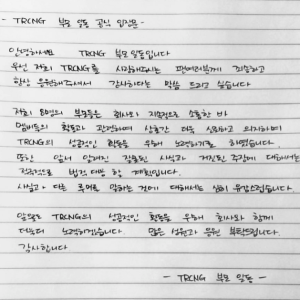 - TRCNG 부모 일동 공식 입장문 -
안녕하세요 TRCNG 부모 일동입니다
우선 저희 TRCNG를 사랑해주시는 팬여러분께 죄송하고
항상 응원해주셔서 감사하다는 말씀 드리고 싶습니다
저희 8명의 부모들은 회사와 지속적으로 소통한 바
멤버들의 활동과 관련하여 상호간 더욱 신뢰하고 의지하며
TRCNG의 성공적인 활동을 위해 노력하기로 하였습니다.
또한 앞서 알려진 잘못된 사실과 거짓된 주장에 대해서는
적극적으로 법적 대응 할 계획입니다.
사실과 다른 루머로 말하는 것에 대해서는 심히 유감스럽습니다.
앞으로 TRCNG의 성공적인 활동을 위해 회사와 함께
더욱더 노력하겠습니다 많은 성원과 응원 부탁드립니다.
감사합니다
- TRCNG 부모 일동 -